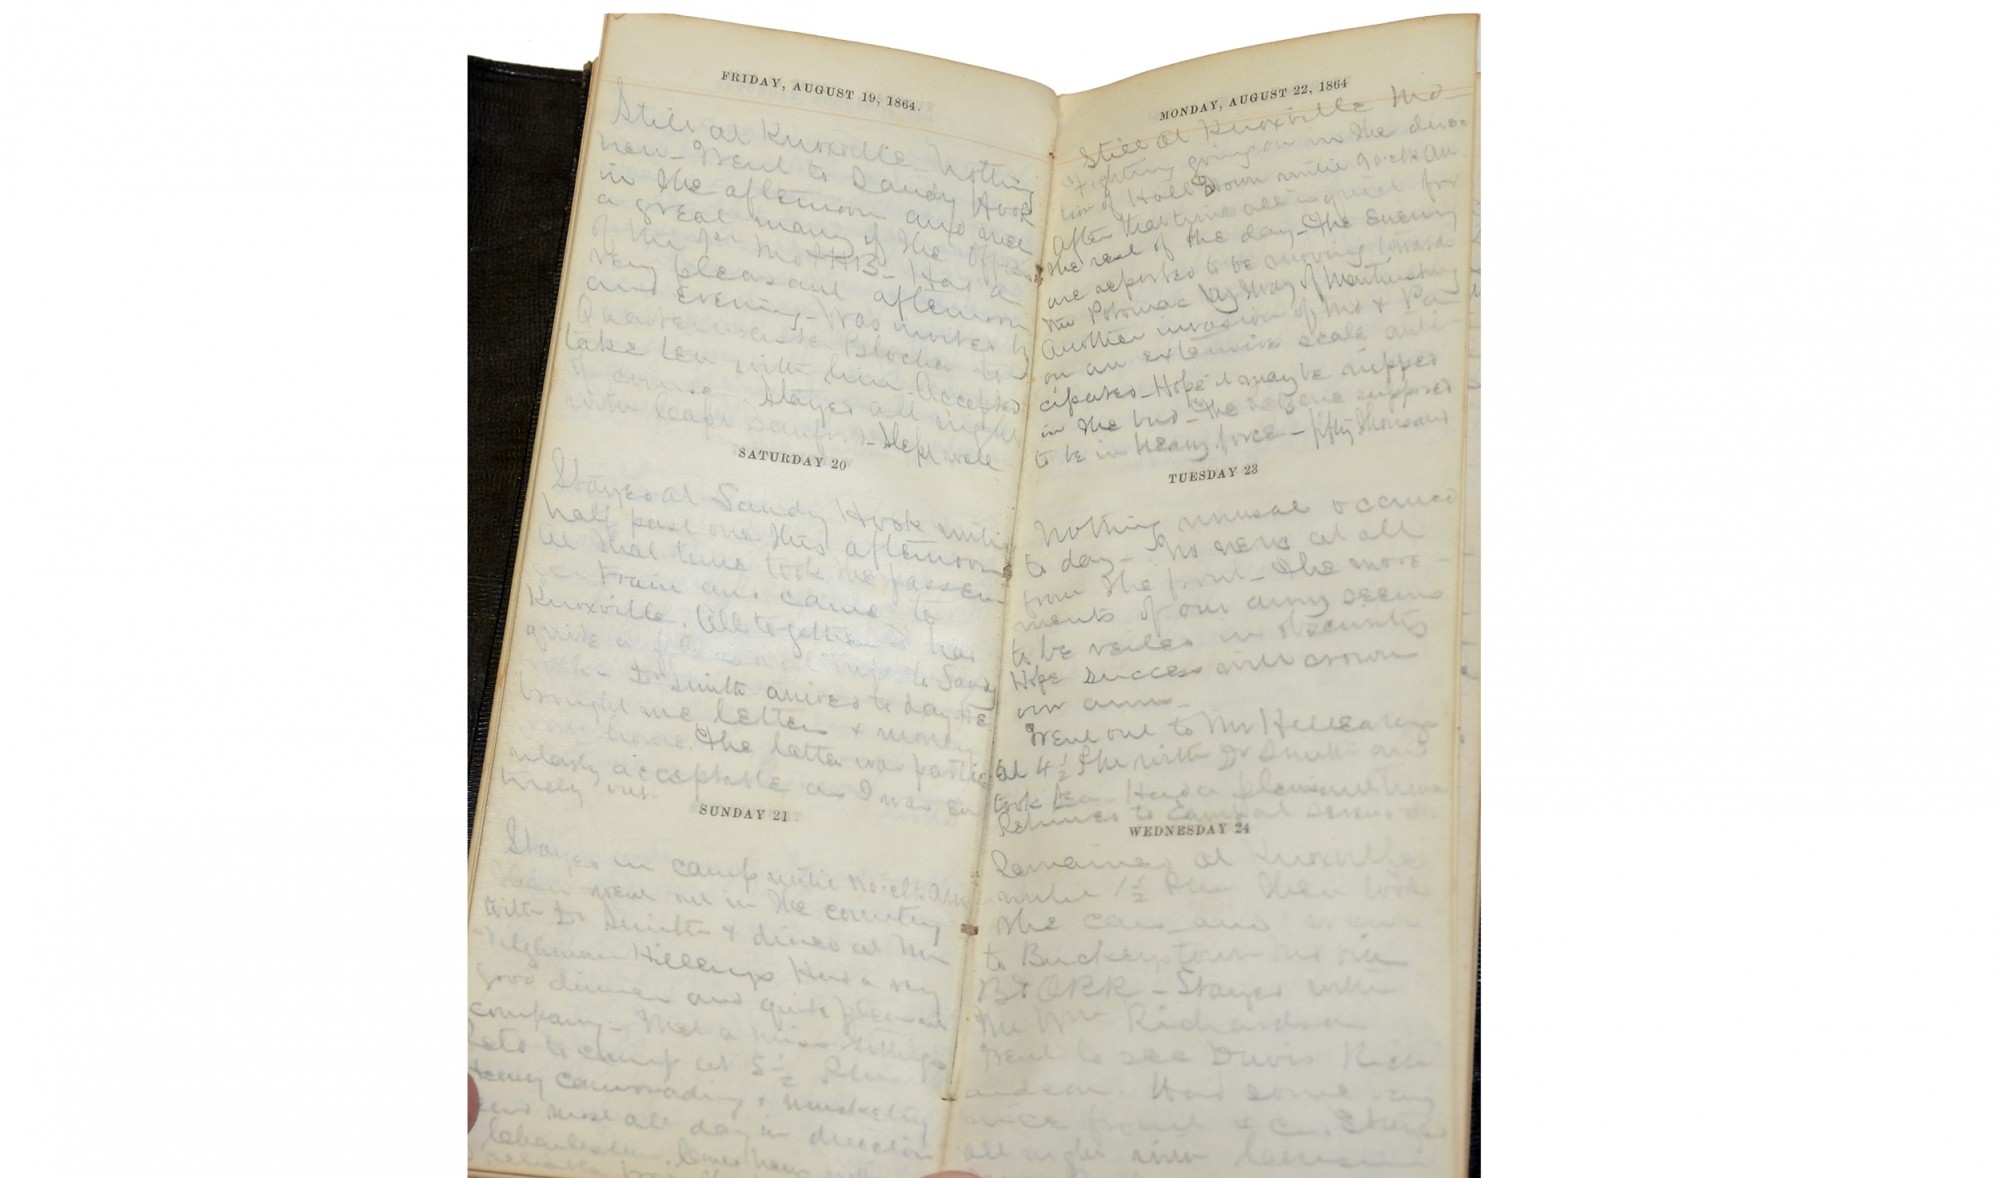 FRIDAY, AUGUST 19, 1864.
Still at Knoxville Nothing
new - Went to Sandy Hook
in the afternoon and met
a great many of the Officers
of the 1st Md PHB - Had a
very pleasant afternoon
and Evening - Was invited by
Quartermaster Blocher to
take tea with him. Accepted
of course. Stayed all night
with - Slept well
SATURDAY 20
Stayed at Sandy Hook until
half past one this afternoon
at that time took the passen-
ger train and came to
Knoxville. All together I had
quite a pleasant trip to Sandy
Hook - Dr Smith arrived to day. He
brought me letter & money
from home. The latter was partic-
ularly acceptable as I was en-
tirely out.
SUNDAY 21
Stayed in camp until 10 o.clk AM
Then went out in the country
with Dr Smith & dined at Mr
Tilghman Hillearys Had a very
good dinner and quite pleasant
company - Met a Miss
Retd to camp at 5 1/2 P.M.
Heavy cannonading & musketry
heard most all day in direction
Charlestown.
MONDAY, AUGUST 22, 1864
Still at Knoxville Md -
Fighting going on in the direc-
tion of Hall Town until 9 o.clk AM
After that time all is quiet for
the rest of the day - The Enemy
are reported to be moving toward
the Potomac by Way of Martinsburg
Another invasion of Md & Pa
on an extensive scale anti-
cipated - Hope it may be nipped
in the bud - The Rebs are supposed
to be in heavy force - fifty thousand
TUESDAY 23
Nothing unusal occured
to day - No news at all
from the front - The move-
ments of our army seems
to be veiled in obscurity
Hope success will crown
our arms -
Went out to Mr Hillearys
at 4 1/2 PM with Dr Smith and
took tea - Had a pleasant time
Returned to Camp at
WEDNESDAY 24
Remained at Knoxville
until 1 1/2 PM then took
the cars and went
to Buckeystown Md on
B & O RR - Stayed with
Mr Wm Richardson
Went to see Davis Rich-
ardson. Had some very
nice fruit & c. Stayed
all night with